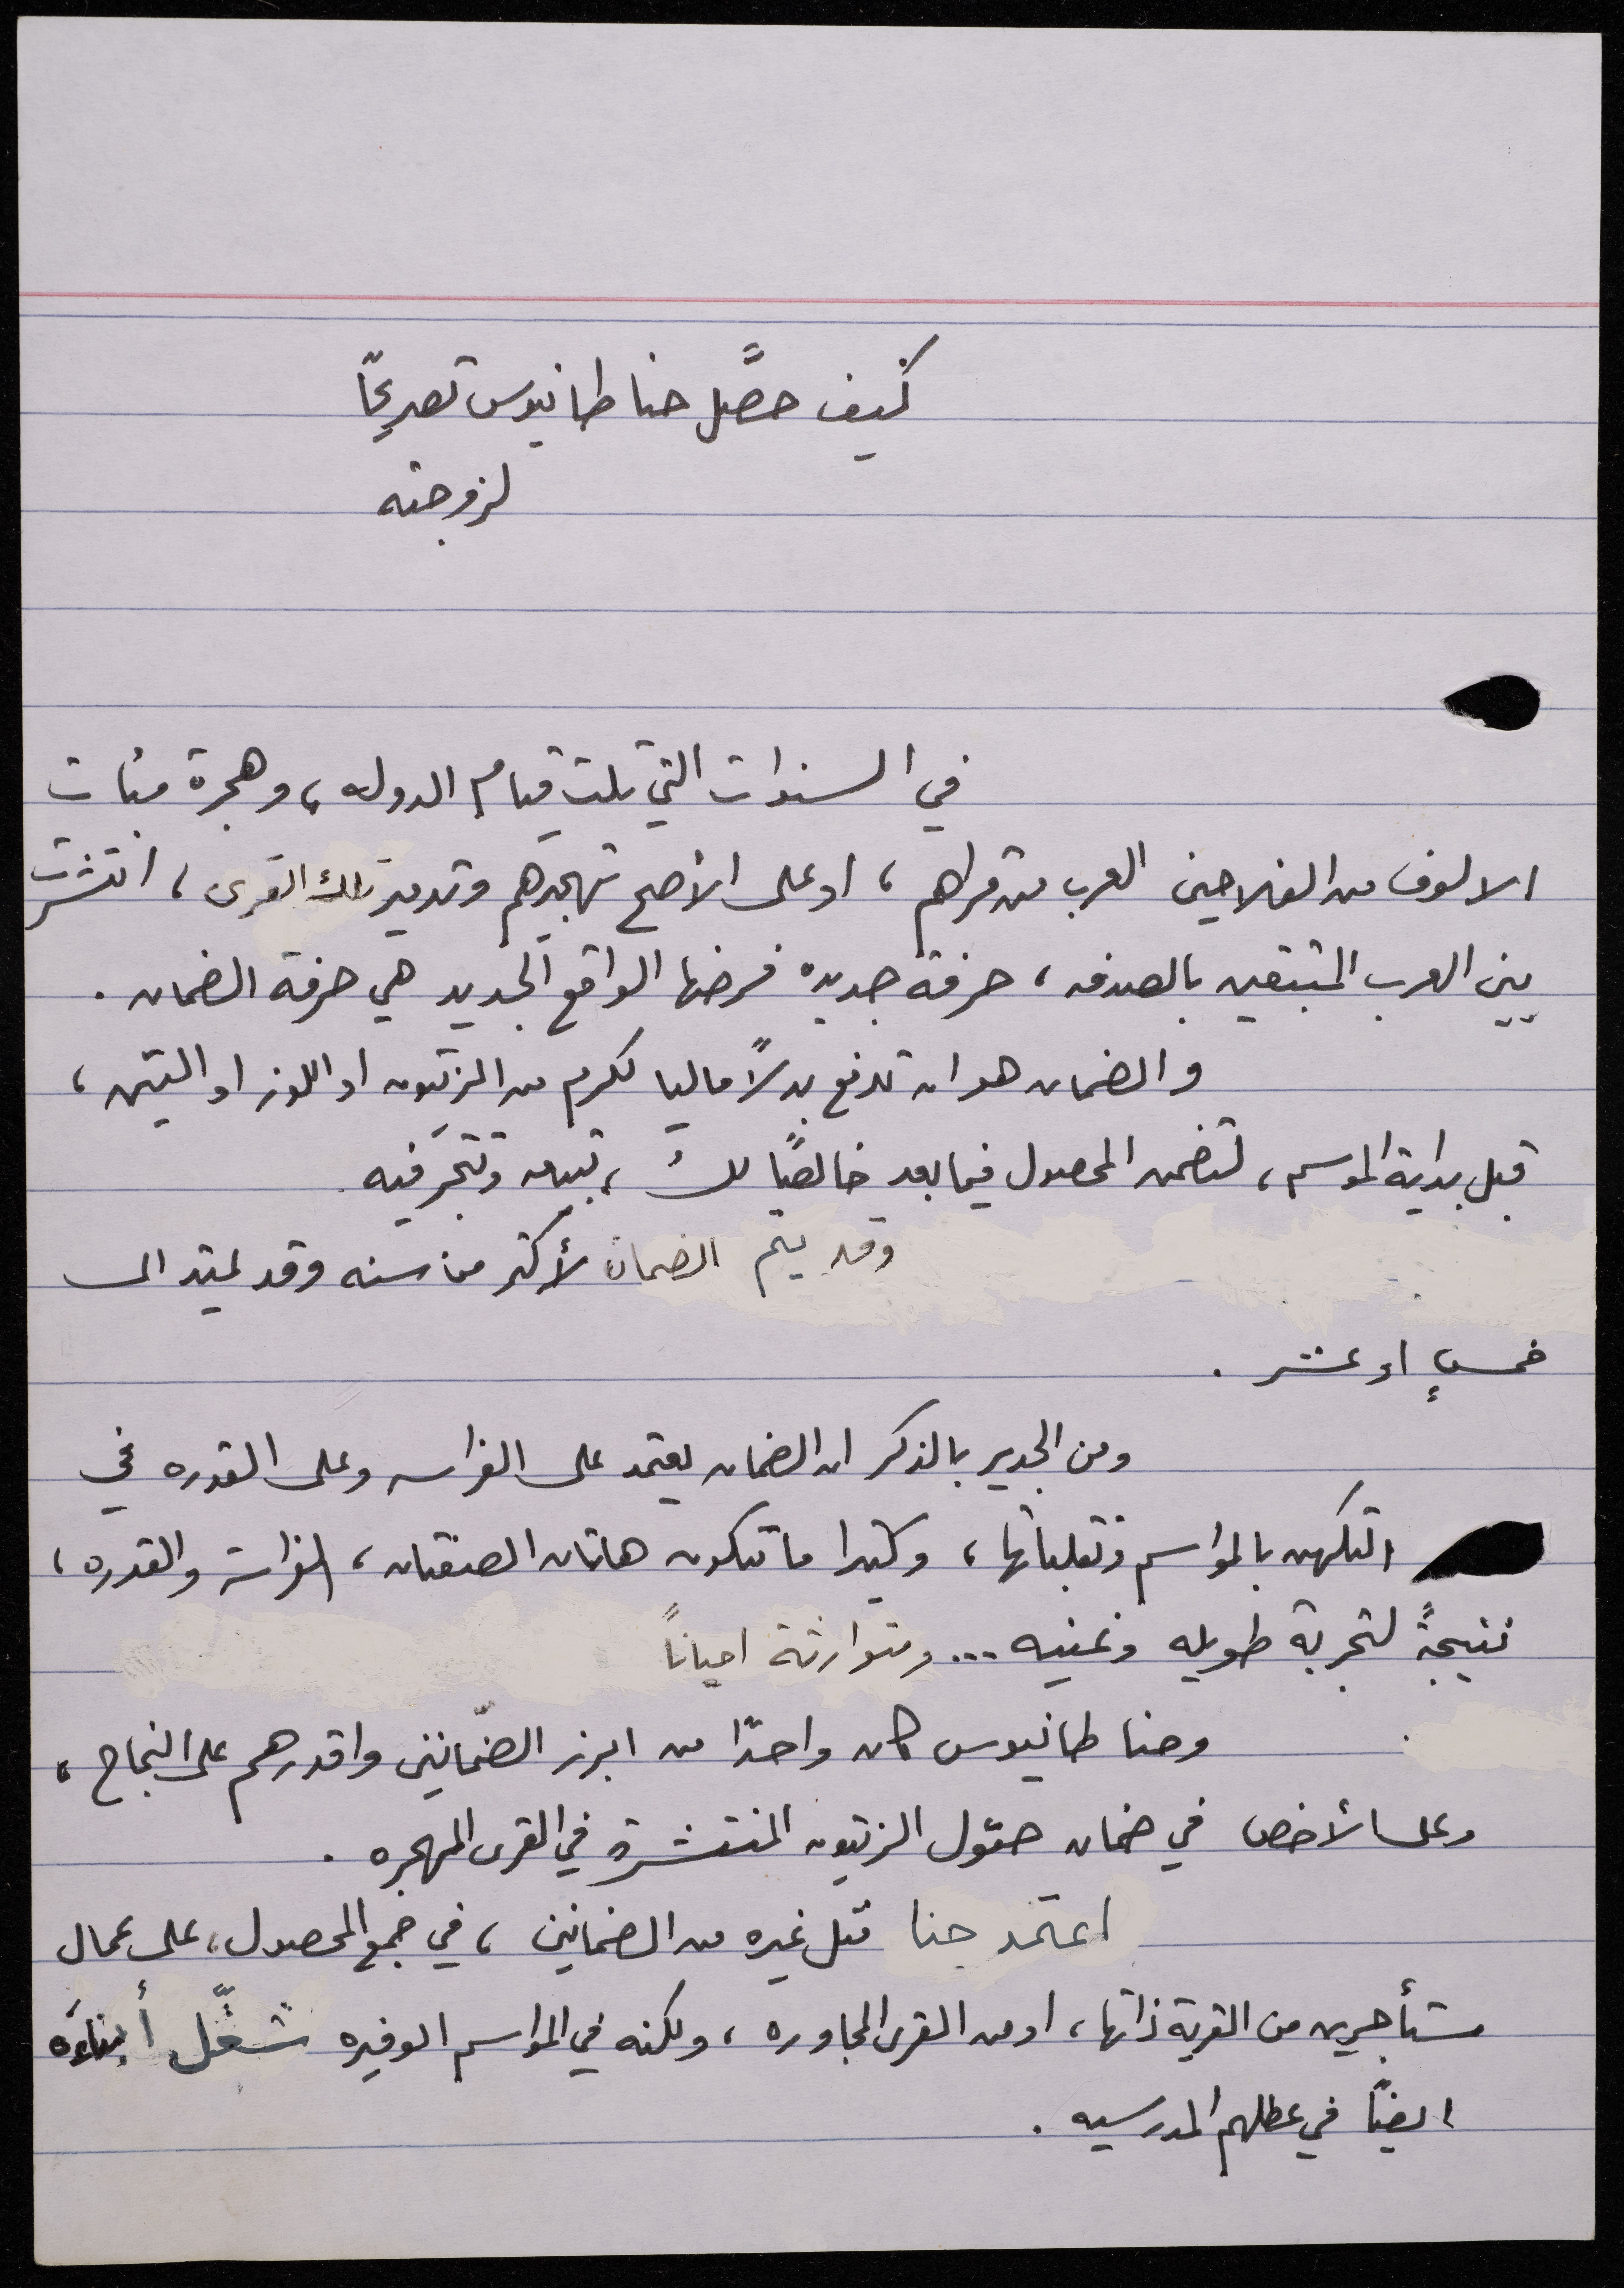 كيف حصَّل حنا طانيوس تصريحًا
لزوجته
في السنوات التي تلت قيام الدوله، وهجرة مئات
الالوف من الفلاحين العرب من قراهم، او على الأصح تهجيرهم وتدمير تلك القرى، انتشرت
بين العرب المتبقين بالصدفه، حرفة جديده فرضها الواقع الجديد هي حرفة الضمان.
والضمان هو ان تدفع بدلًا ماليا لكرم من الزيتون او اللوز او التين،
قبل بداية الموسم، لتضمن المحصول فيما بعد خالصًا لك، تبيعه وتتجَر فيه.
وقد يتم الضمان لأكثر من سنه وقد يمتد الى
خمسٍ او عشر.
ومن الجدير بالذكر ان الضمان يعتمد على الفراسه وعلى القدره في
التكهن بالمواسم وتقلباتها، وكثيرا ما تكون هاتان الصفتان، الفراسة والقدره،
نتيجةً لتجربة طويله وغنيه... ومتوارثة احياناً
وحنا طانيوس كان واحدًا من ابرز الضمّانين واقدرهم على النجاح،
وعلى الأخص في ضمان حقول الزيتون المنتشرة في القرى المهجره.
اعتمد حنا مثل غيره من الضمانين، في جمع المحصول، على عمال
مستأجرين من القرية ذاتها، او من القرى المجاوره، ولكنه في المواسم الوفيره شغَّل أبناءَه
ايضًا في عطلهم المدرسيه.